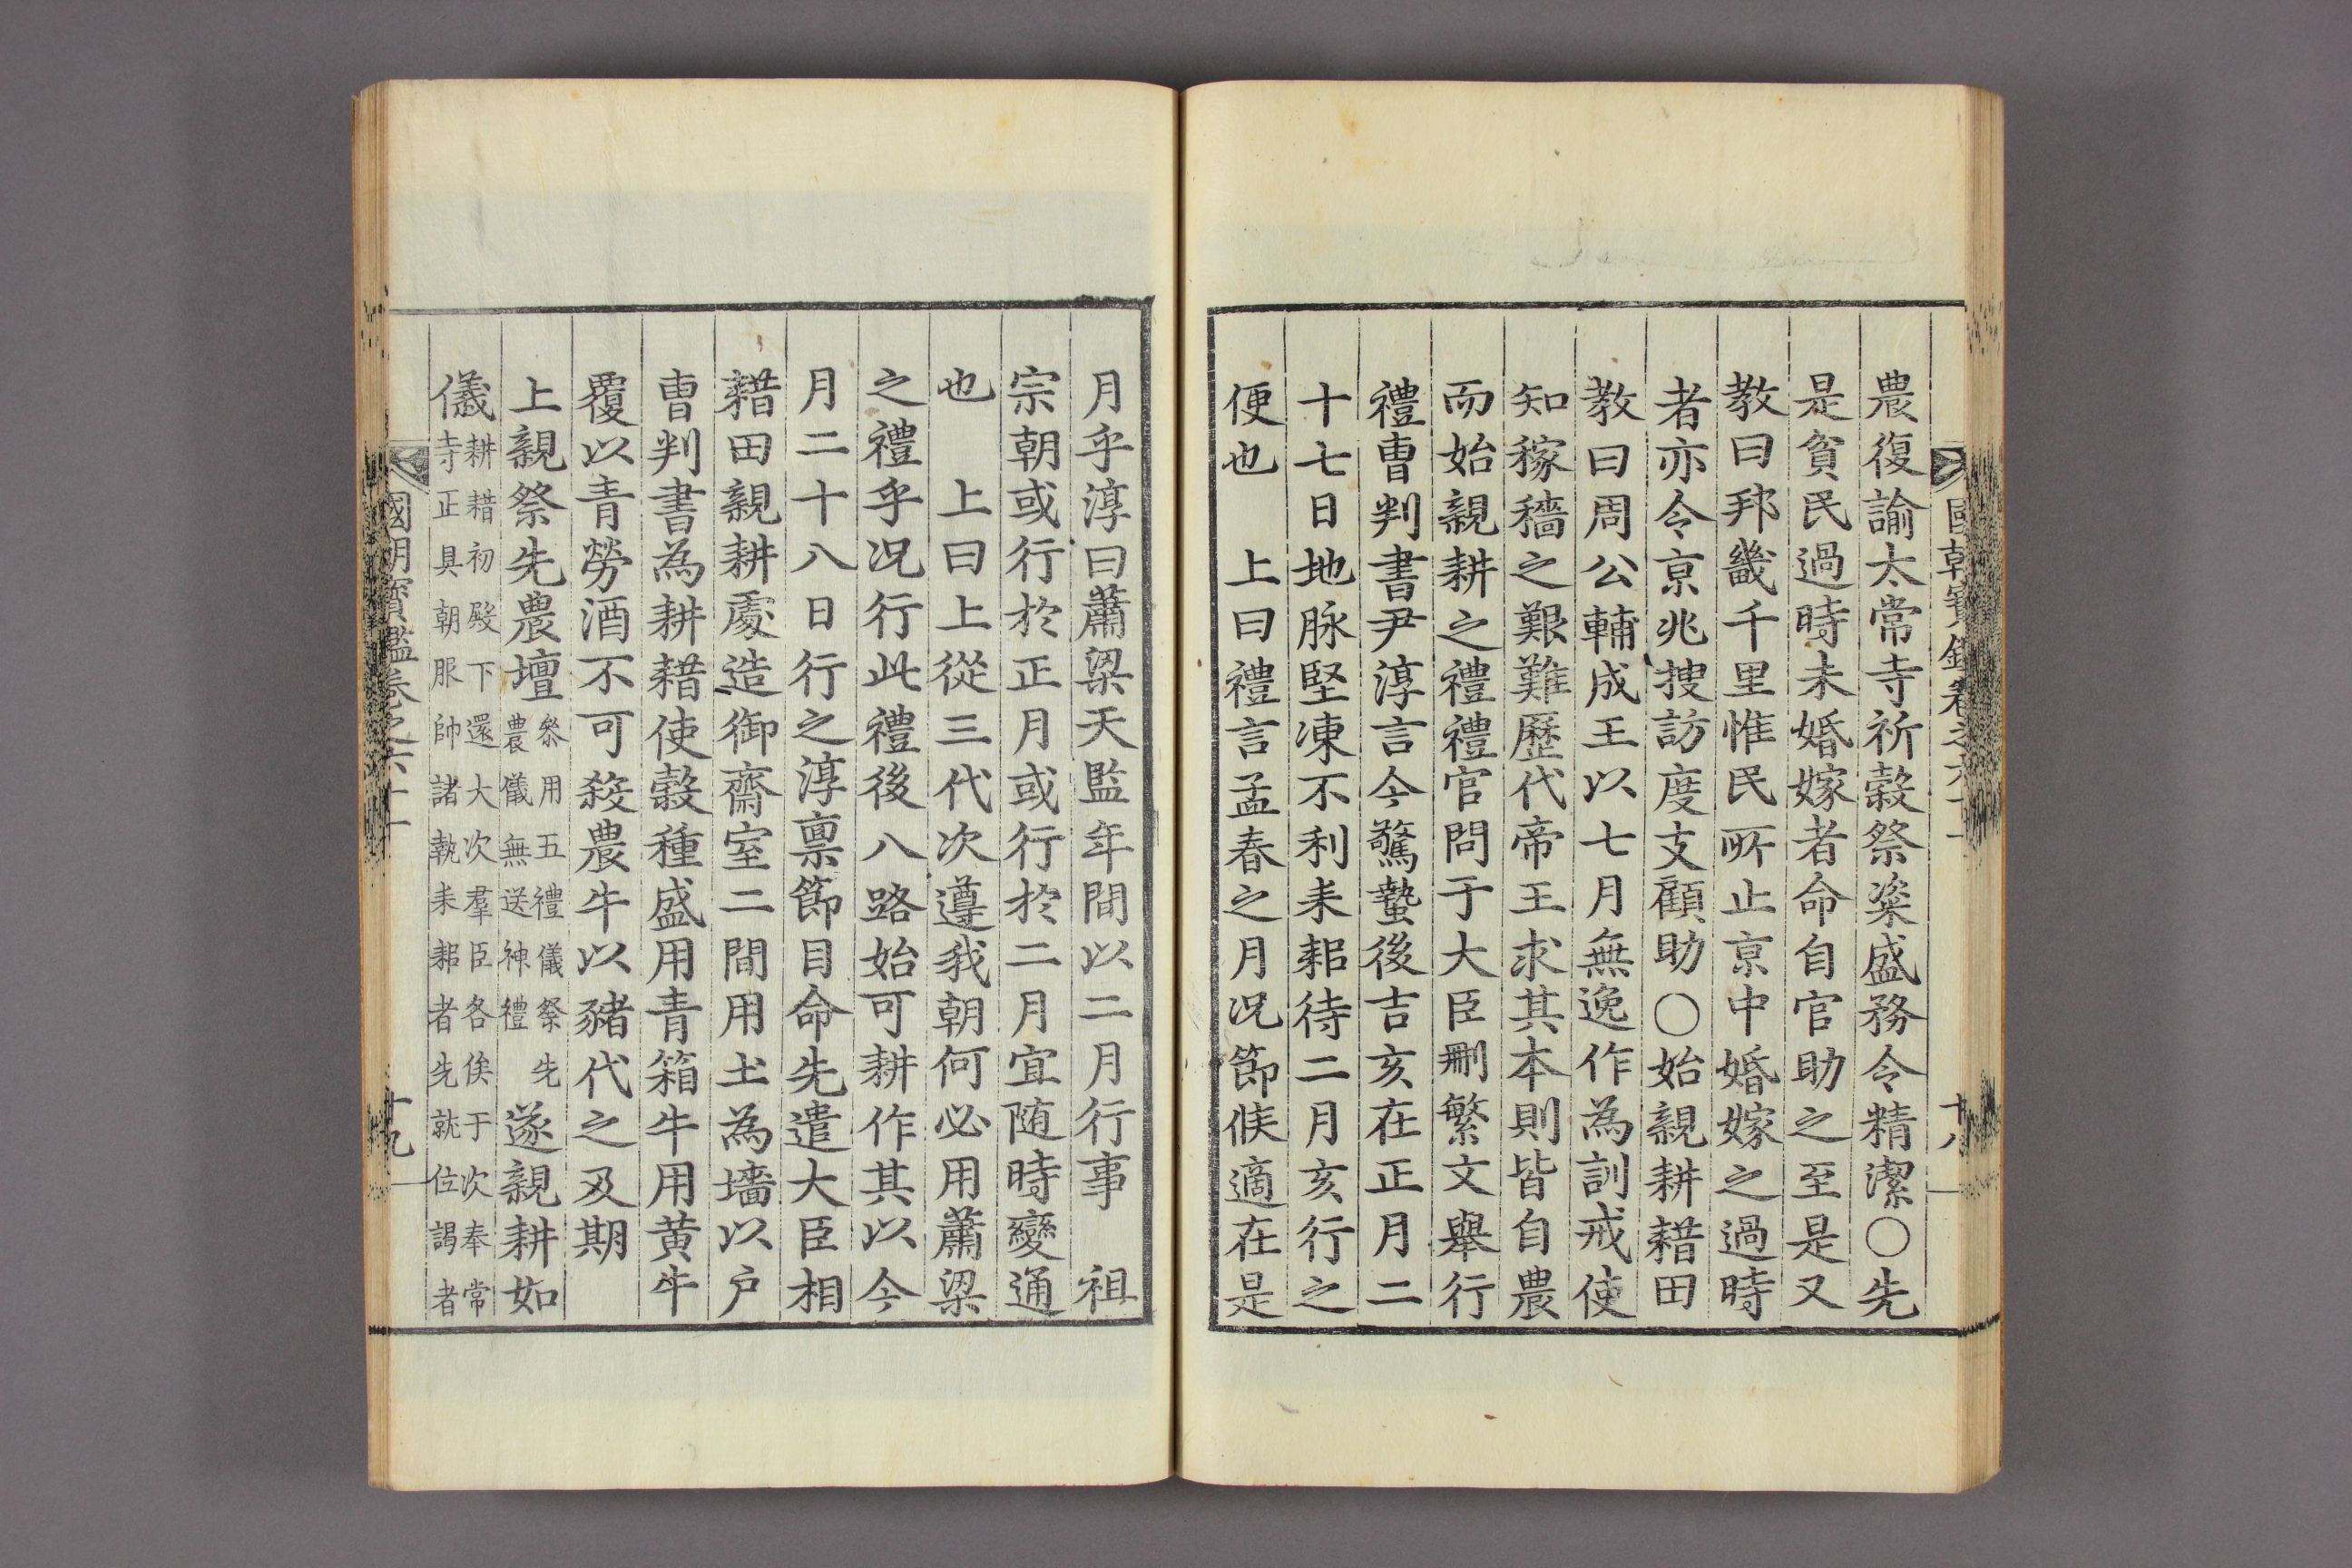 國朝寶鑑卷之六十一 十八
農復諭太常寺祈穀祭粢盛務令精潔○先
是貧民過時未婚嫁者命自官助之至是又
教曰邦畿千里惟民所止京中婚嫁之過時
者亦令京兆搜訪度支顧助○始親耕耤田
教曰周公輔成王以七月無逸作為訓戒使
知稼穡之艱難歷代帝王求其本則皆自農
而始親耕之禮禮官問于大臣刪繁文舉行
禮曹判書尹淳言今驚蟄後吉亥在正月二
十七日地脉堅凍不利耒耜待二月亥行之
便也 上曰禮言孟春之月况節候適在是
月乎淳曰蕭梁天監年間以二月行事 祖
宗朝或行於正月或行於二月宜随時變通
也 上曰上從三代次遵我朝何必用蕭梁
之禮乎况行此禮後八路始可耕作其以今
月二十八日行之淳禀節目命先遣大臣相
耤田親耕處造御齋室二間用土為墻以户
曹判書為耕耤使穀種盛用青箱牛用黄牛
覆以青勞酒不可殺農牛以豬代之及期
上親祭先農壇祭用五禮儀祭先農儀無送神禮遂親耕如
儀耕耤初殿下還大次羣臣各俟于次奉常寺正具朝服帥諸執耒耜者先就位謁者
國朝寶鑑卷之六十一 十九